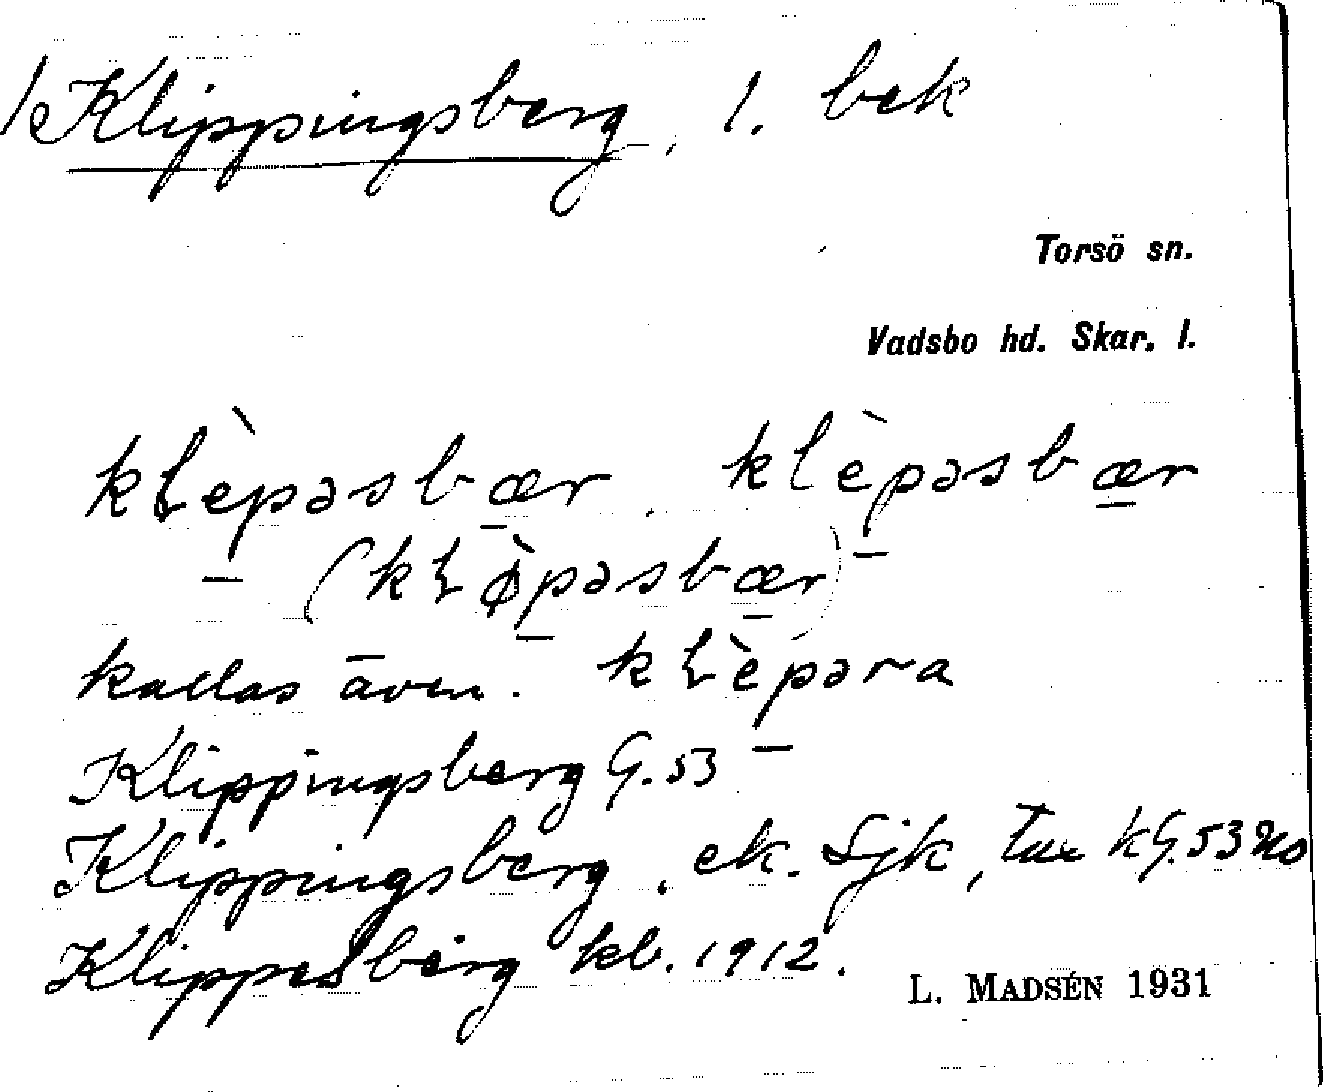 Klippingsberg, l. bek
Torsö sn.
Vadsbo hd. Skar. l.
kLèpəsbær, klèpəsbær
(kLø̀pəsbær)
kallas även. kLèpəra
Klippingsberg G. 53
Klippingsberg, ek. Sjk, kG. 53
Klippesberg kb. 1912.
L. MADSÉN 1931